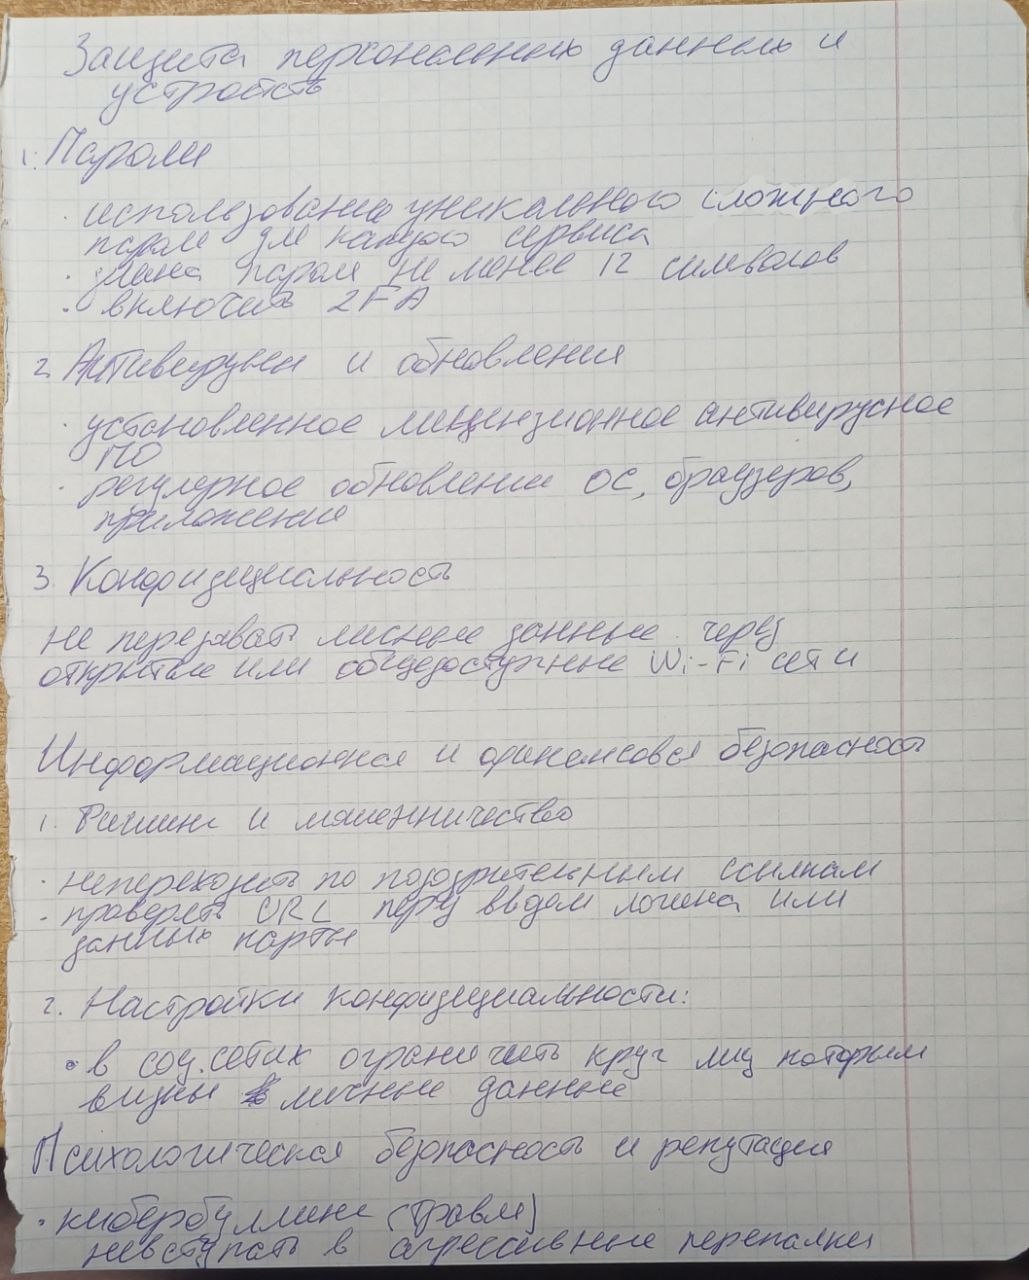 Защита персональных данных и
устройств
1. Пароли
· использование уникального сложного
пароля для каждого сервиса
· длина пароля не менее 12 символов
· включить 2FA
2. Антивирусы и обновления
· установленное лицензионное антивирусное
ПО
· регулярное обновление ОС, браузеров,
приложения
3. Конфидициальность
не передавать личные данные через
открытые или общедоступные Wi-Fi сети
Информационная и финансовая безопасность
1. Фишинг и мошенничество
· непереходить по подозрительным ссылкам
· проверять URL перед вводом логина или
данных карты
2. Настройки конфидициальности:
· в соц.сетях ограничить круг лиц которым
видны личные данные
Психологическая безопасность и репутация
· кибербуллинг (травля)
невступать в агрессивные перепалки